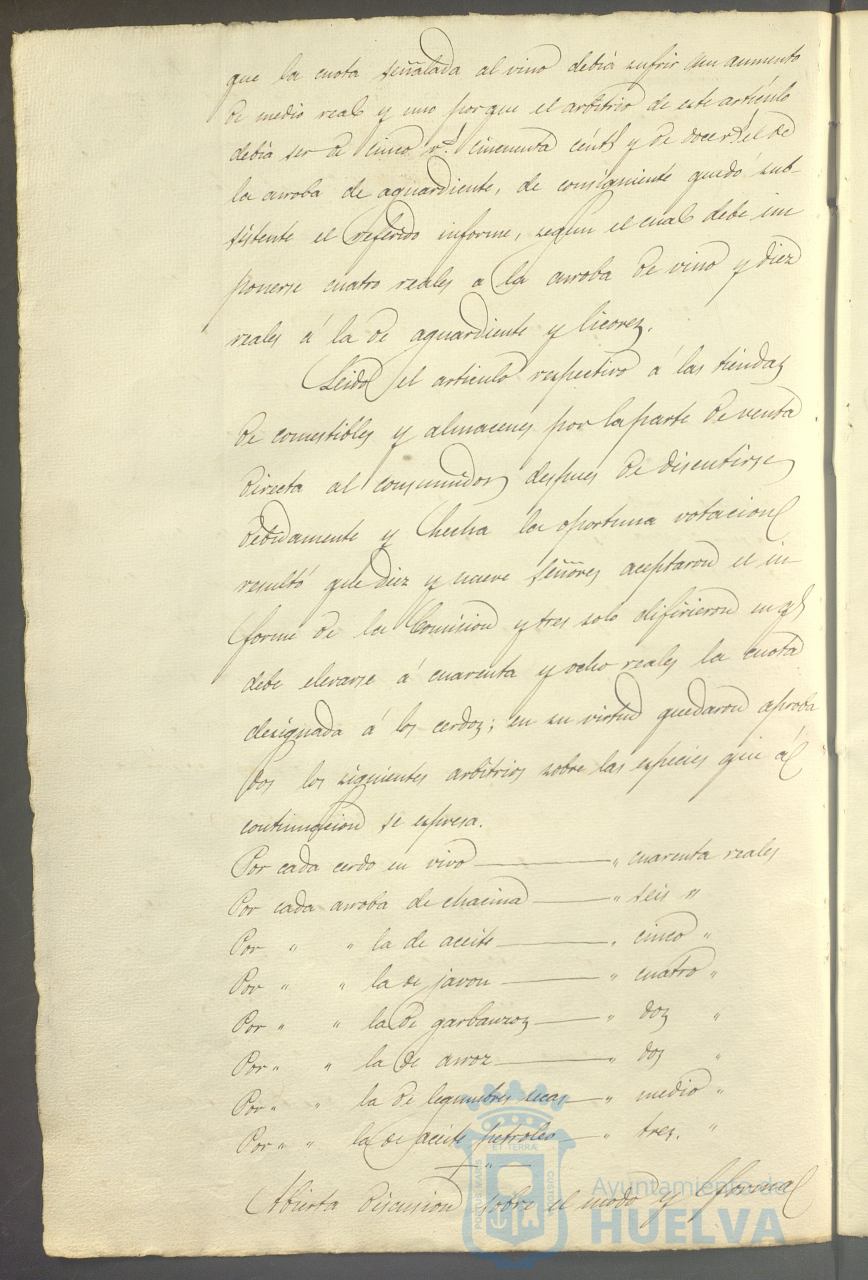 que la cuota señalada al vino debia sufrir un aumento
de medio real y uno porque el arbitrio de este artículo
debia ser de cinco rs. cincuenta cénts y de doce rs. el de
la arroba de aguardiente, de consiguiente quedó sub-
sistente el referido informe, segun el cual debe im
ponerse cuatro reales a la arroba de vino y diez
reales á la de aguardiente y licores.
Leido el articulo respectivo á las tiendas
de comestibles y almacenes por la parte de venta
directa al consumidor, despues de discutirse
debidamente y hecha la oportuna votacion
resultó que diez y nueve señores aceptaron el in-
forme de la Comision y tres solo difirieron en q.
debe elevarse á cuarenta y ocho reales la cuota
designada á los cerdos; en su virtud quedaron aproba
dos los siguientes arbitrios sobre las especies que á
continuacion se espresa.
Por cada cerdo en vivo " cuarenta reales
Por cada arroba de chacina " seis "
Por " " la de aceite " cinco "
Por " " la de javon " cuatro "
Por " " la de garbanzos " dos "
Por " " la de arroz " dos "
Por " " la de legumbres secas " medio "
Por " " la de aceite petroleo " tres. "
Abierta discusion sobre el modo y forma
PORTUS MARIS ET TERRAE CUSTODIA
Ayuntamiento de
HUELVA